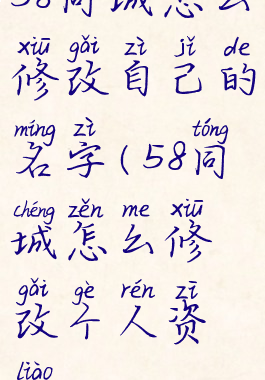 58同城怎么
xiū gǎi zì jǐ de
修改自己的
míng zì tóng
名字(58同
chéng zěn me xiū
城怎么修
gǎi gè rén zī
改个人资
liào